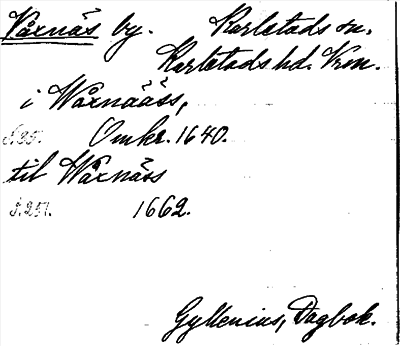 Våxnäs by. Karlstads sn.
Karlstads hd. Vrm.
i Wåxnääss,
S. 251. Omkr. 1640.
til Wåxnäss
S. 251. 1662.
Gyllenius, Dagbok.